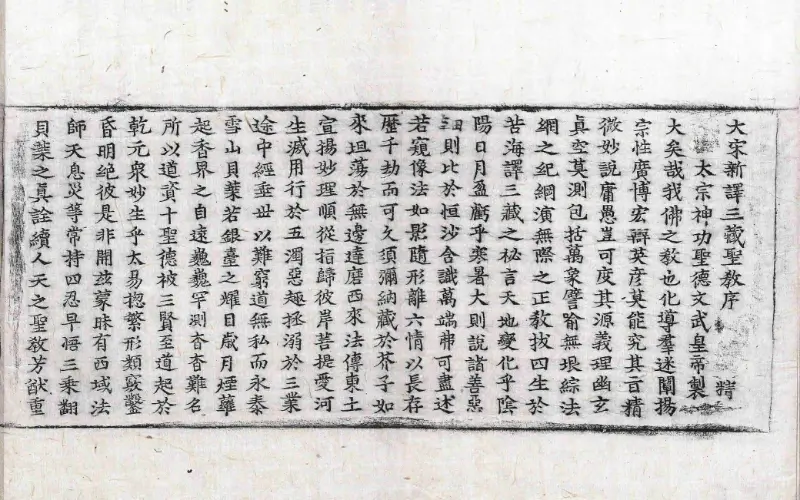 大宋新譯三藏聖教序 精
太宗神功聖德文武皇帝製
大矣哉我佛之教也化導羣迷闡揚
宗性廣博宏辯英彦莫能究其旨精
微妙說庸愚豈可度其源義理幽玄
真空莫測包括萬象譬喻無垠綜法
網之紀綱演無際之正教拔四生於
苦海譯三藏之秘言天地變化乎陰
陽日月盈虧乎寒暑大則說諸善惡
細則比於恒沙含識萬端弗可盡述
若窺像法如影隨形離六情以長存
歷千劫而可久須彌納藏於芥子如
來坦蕩於無邊達磨西來法傳東土
宣揚妙理順從指歸彼岸菩提愛河
生滅用行於五濁惡趣拯溺於三業
途中經垂世以難窮道無私而永泰
雪山貝葉若銀臺之耀目歲月煙蘿
起香界之自遠巍巍罕測杳杳難名
所以道資十聖德被三賢至道起於
乾元衆妙生乎太易揔繁形類竅鑿
昏明絕彼是非開茲蒙昧有西域法
師天息災等常持四忍早悟三乘翻
貝葉之真詮續人天之聖教芳猷重